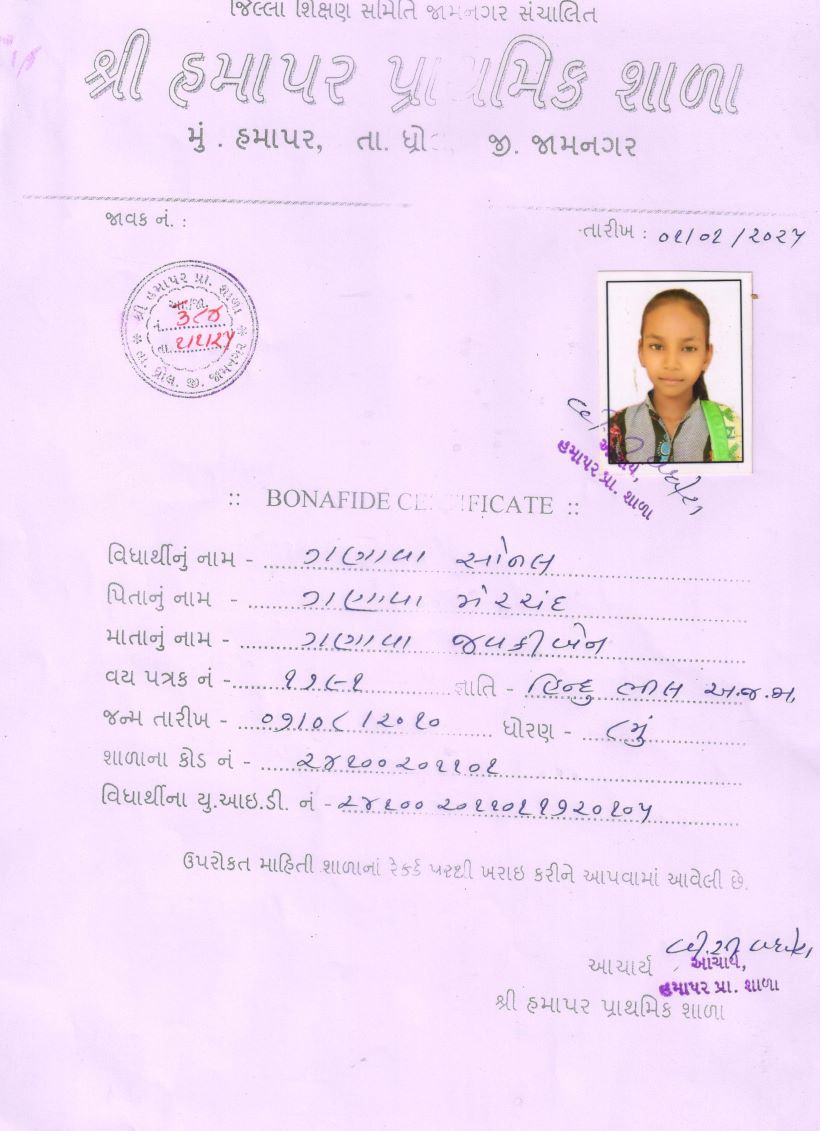 જિલ્લા શિક્ષણ સમિતિ જામનગર સંચાલિત
શ્રી હમાપર પ્રાથમિક શાળા
મું . હમાપર, તા. ધ્રોલ જી. જામનગર
જાવક નં. :
તારીખ : ૦૨/૦૨/૨૦૨૫
શ્રી હમાપર પ્રા. શાળા
આ/જા.
નં. ૩૮૪
તા.
તા. ધ્રોલ. જી. જામનગર
આચાર્ય,
હમાપર પ્રા. શાળા
:: BONAFIDE CERTIFICATE ::
વિધાર્થીનું નામ - ગણાવા સોનલ
પિતાનું નામ - ગણાવા
માતાનું નામ - ગણાવા
વય પત્રક નં - ૧૨૯૧ જ્ઞાતિ - હિન્દુ ભીલ અ.જ.જા.
જન્મ તારીખ - ૦૭/૦૮/૨૦૧૦ ધોરણ - ૮મું
શાળાના કોડ નં - ૨૪૧૦૦૨૦૧૧૦૧
વિધાર્થીના યુ.આઇ.ડી. નં - ૨૪૧૦૦૨૦૧૧૦૧૧૭૨૦૧૦૫
ઉપરોકત માહિતી શાળાનાં રેકર્ડ પરથી ખરાઇ કરીને આપવામાં આવેલી છે.
આચાર્ય
આચાર્ય,
હમાપર પ્રા. શાળા
શ્રી હમાપર પ્રાથમિક શાળા